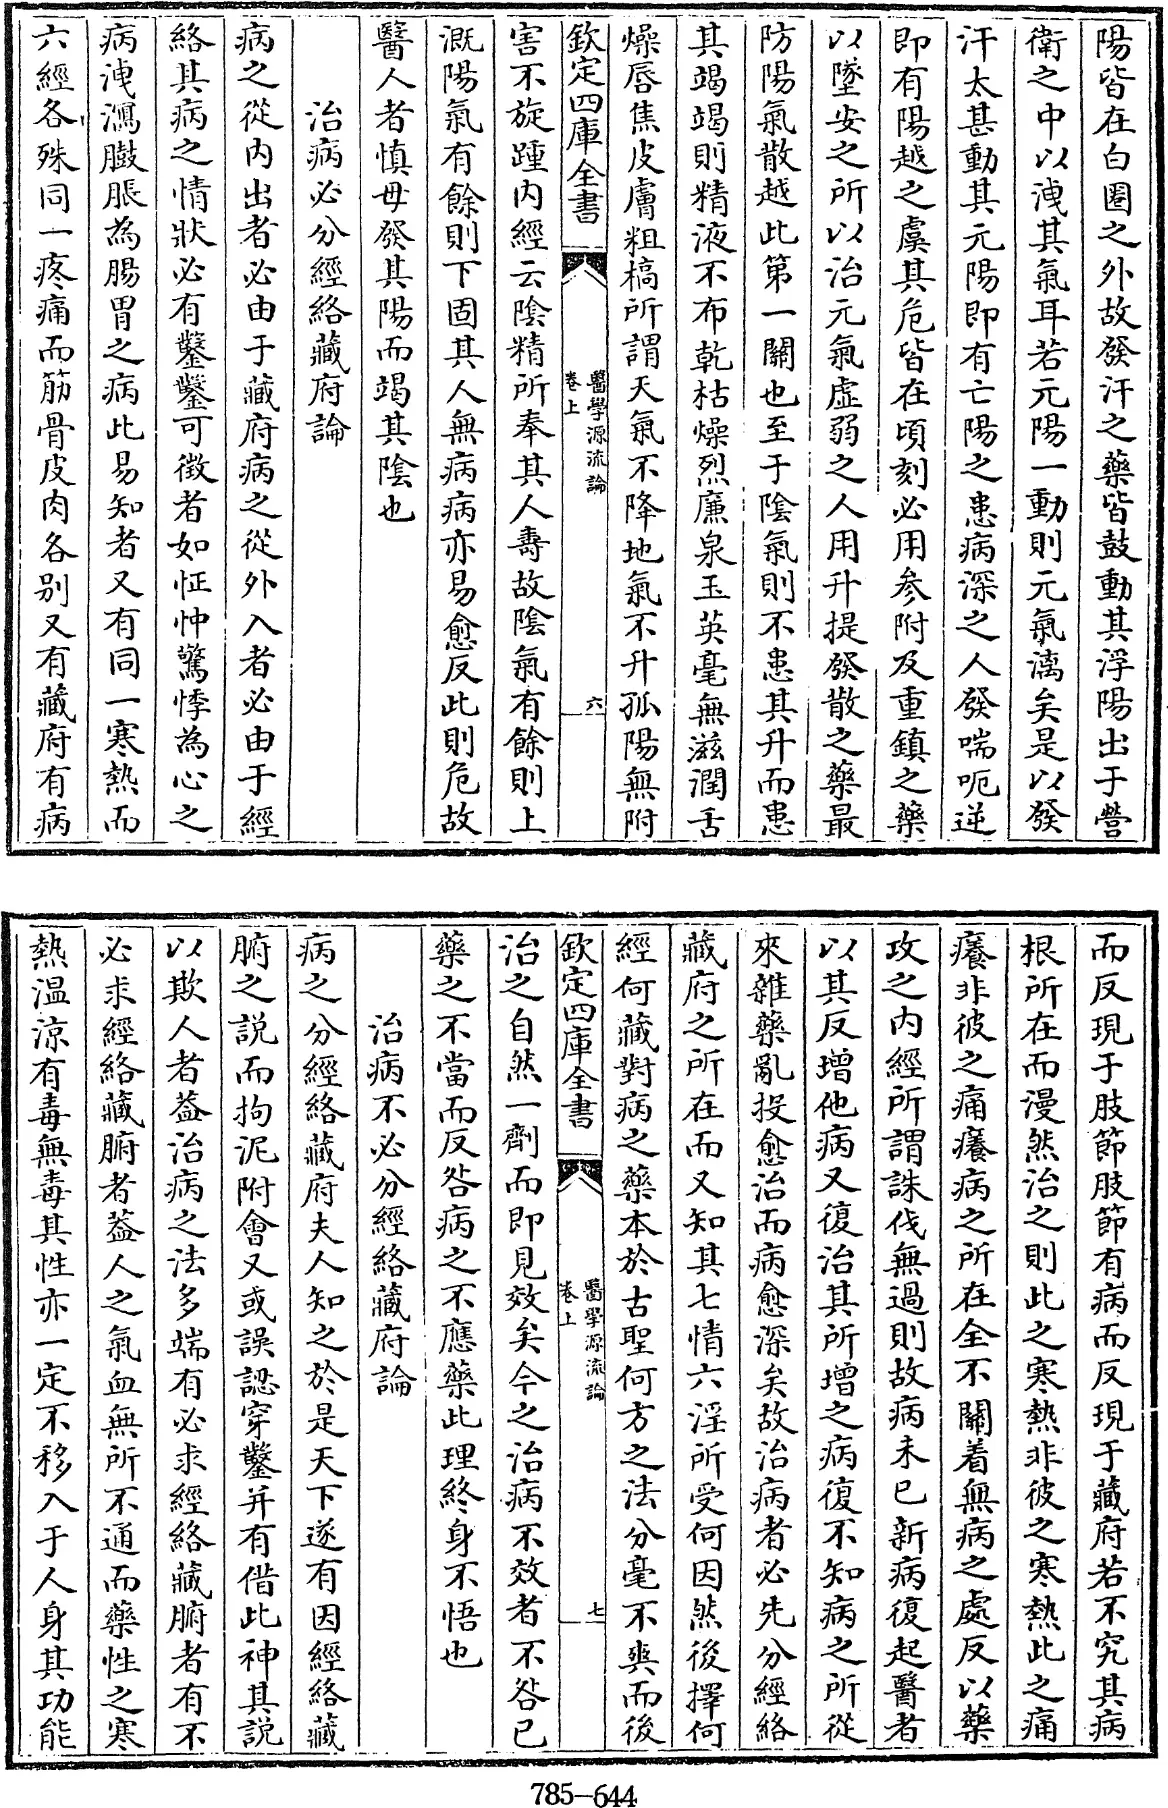 陽皆在白圈之外故發汗之藥皆鼓動其浮陽出于營
衛之中以洩其氣耳若元陽一動則元氣漓矣是以發
汗太甚動其元陽即有亡陽之患病深之人發喘呃逆
即有陽越之虞其危皆在頃刻必用參附及重鎮之藥
以墜安之所以治元氣虛弱之人用升提發散之藥最
防陽氣散越此第一關也至于陰氣則不患其升而患
其竭竭則精液不布乾枯燥烈廉泉玉英毫無滋潤舌
燥唇焦皮膚粗槁所謂天氣不降地氣不升孤陽無附
欽定四庫全書
醫學源流論
卷上
六
害不旋踵内經云陰精所奉其人壽故陰氣有餘則上
溉陽氣有餘則下固其人無病病亦易愈反此則危故
醫人者慎毋發其陽而竭其陰也
治病必分經絡藏府論
病之從内出者必由于藏府病之從外入者必由于經
絡其病之情狀必有鑿鑿可徵者如怔忡驚悸為心之
病洩瀉臌脹為腸胃之病此易知者又有同一寒熱而
六經各殊同一疼痛而筋骨皮肉各別又有藏府有病
而反現于肢節肢節有病而反現于藏府若不究其病
根所在而漫然治之則此之寒熱非彼之寒熱此之痛
癢非彼之痛癢病之所在全不關着無病之處反以藥
攻之内經所謂誅伐無過則故病未已新病復起醫者
以其反增他病又復治其所增之病復不知病之所從
來雜藥亂投愈治而病愈深矣故治病者必先分經絡
藏府之所在而又知其七情六淫所受何因然後擇何
經何藏對病之藥本於古聖何方之法分毫不爽而後
欽定四庫全書
醫學源流論
卷上
七
治之自然一劑而即見效矣今之治病不效者不咎已
藥之不當而反咎病之不應藥此理終身不悟也
治病不必分經絡藏府論
病之分經絡藏府夫人知之於是天下遂有因經絡藏
腑之説而拘泥附會又或誤認穿鑿并有借此神其説
以欺人者葢治病之法多端有必求經絡藏腑者有不
必求經絡藏腑者葢人之氣血無所不通而藥性之寒
熱温涼有毒無毒其性亦一定不移入于人身其功能
785-644